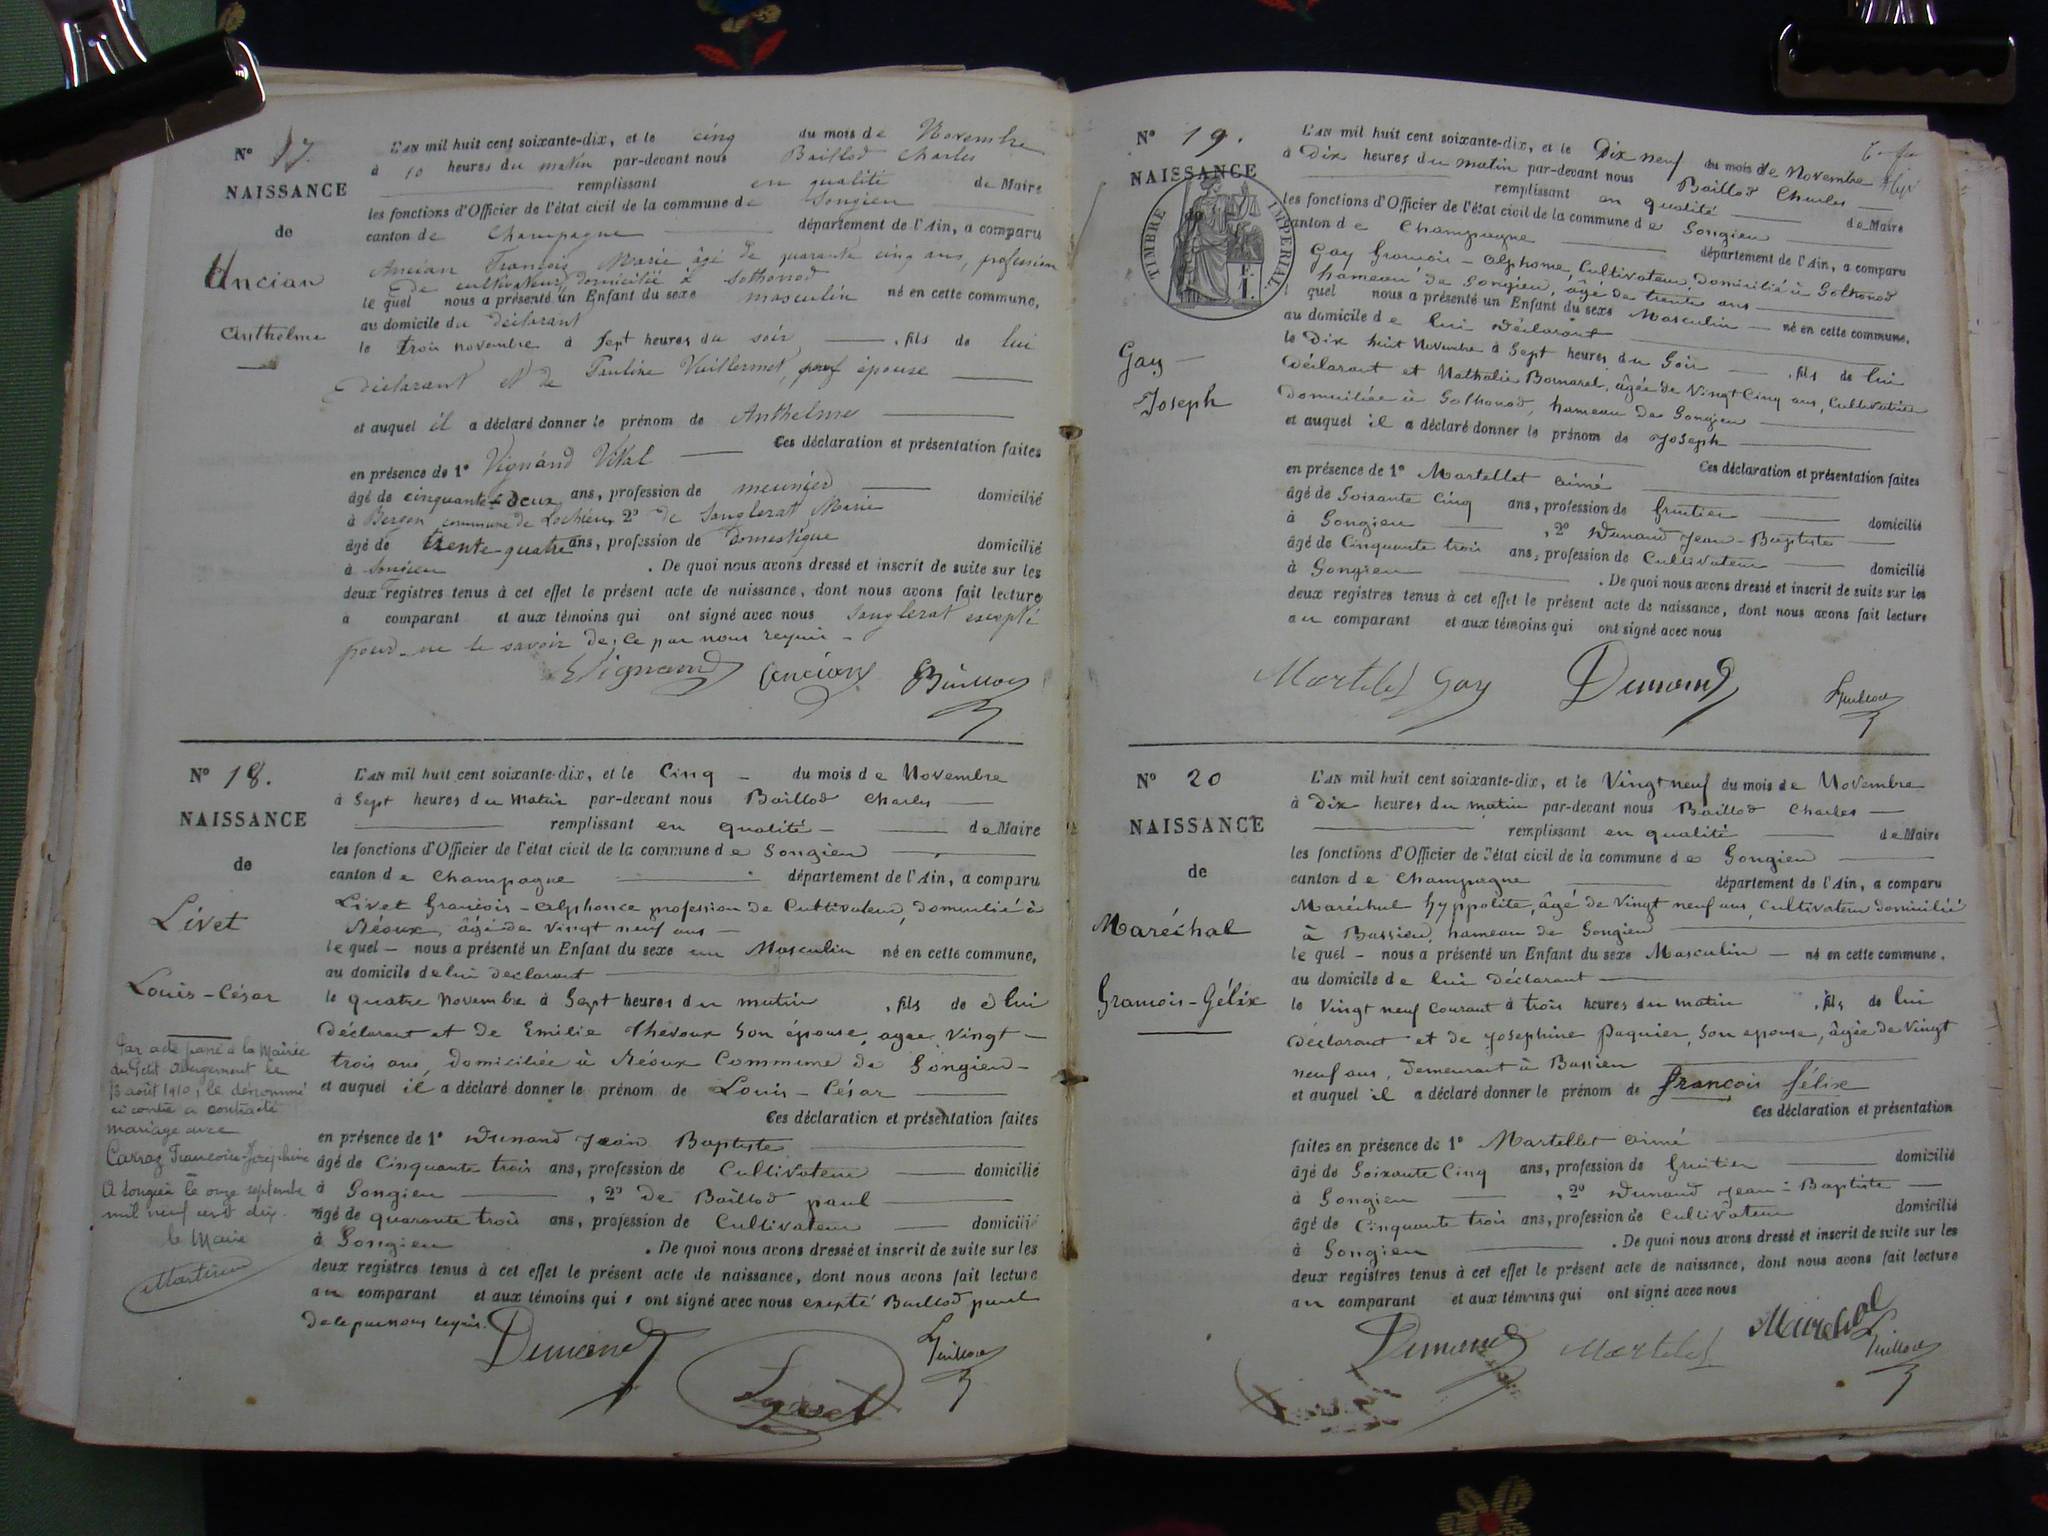 N° 17.
NAISSANCE
de
Ancian
Anthelme
L'AN mil huit cent soixante-dix, et le cinq du mois de Novembre
à 10 heures du matin par-devant nous Baillod Charles
remplissant en qualité de Maire
les fonctions d'Officier de l'état civil de la commune de Songieu
canton de Champagne département de l'Ain, a comparu
Ancian François Marie âgé de quarante cinq ans, profession
de cultivateur, domicilié à Sothonod
le quel nous a présenté un Enfant du sexe masculin né en cette commune,
au domicile du déclarant
le trois novembre à sept heures du soir, fils de lui
déclarant et de Pauline Vuillermet, épouse
et auquel il a déclaré donner le prénom de Anthelme
Ces déclaration et présentation faites
en présence de 1° Vignand Vital
âgé de cinquante-deux ans, profession de meunier domicilié
à commune de Lochieu, 2° de Sanglerat Marie
âgé de trente-quatre ans, profession de Domestique domicilié
à Songieu . De quoi nous avons dressé et inscrit de suite sur les
deux registres tenus à cet effet le présent acte de naissance, dont nous avons fait lecture
à comparant et aux témoins qui ont signé avec nous Sanglerat excepté
pour ne le savoir de ce par nous requis -
Vignand Ancian Baillod
N° 18.
NAISSANCE
de
Livet
Louis-César
Par acte passé à la Mairie
du Petit Abergement le
13 août 1910, le dénommé
ci contre a contracté
mariage avec
Carraz Françoise-Joséphine
A Songieu le onze septembre
mil neuf cent dix.
le Maire
L'AN mil huit cent soixante-dix, et le Cinq - du mois de Novembre
à Sept heures du Matin par-devant nous Baillod Charles
remplissant en qualité - de Maire
les fonctions d'Officier de l'état civil de la commune de Songieu
canton de Champagne département de l'Ain, a comparu
Livet François-Alphonce profession de Cultivateur, domicilié à
Réoux, âgé de vingt neuf ans -
le quel - nous a présenté un Enfant du sexe un Masculin né en cette commune,
au domicile de lui déclarant
le quatre Novembre à Sept heures du matin , fils de lui
déclarant et de Emilie Thevoux Son épouse, agee, Vingt -
trois ans, domiciliée à Réoux Commune de Songieu -
et auquel il a déclaré donner le prénom de Louis-César
Ces déclaration et présentation faites
en présence de 1° Dunand Jean Baptiste
âgé de Cinquante trois ans, profession de Cultivateur domicilié
à Songieu , 2° de Baillod paul
âgé de quarante trois ans, profession de Cultivateur domicilié
à Songieu . De quoi nous avons dressé et inscrit de suite sur les
deux registres tenus à cet effet le présent acte de naissance, dont nous avons fait lecture
au comparant et aux témoins qui ont signé avec nous exepté Baillod paul
de ce par nous requis.
Dunand
N° 19.
NAISSANCE
de
TIMBRE IMPÉRIAL
1 F.
Gay
Joseph
L'AN mil huit cent soixante-dix, et le Dix neuf du mois de Novembre
à Dix heures du matin par-devant nous Baillod Charles
remplissant en qualité de Maire
les fonctions d'Officier de l'état civil de la commune de Songieu
canton de Champagne département de l'Ain, a comparu
Gay François-Alphonse, Cultivateur, domicilié à Sothonod
hameau de Songieu, âgé de trente ans
quel nous a présenté un Enfant du sexe Masculin né en cette commune,
au domicile de lui déclarant
le Dix huit Novembre à Sept heures du Soir , fils de lui
déclarant et Nathalie Bornarel, âgée de Vingt Cinq ans, Cultivatrice
domiciliée à Sothonod, hameau de Songieu
et auquel il a déclaré donner le prénom de Joseph
Ces déclaration et présentation faites
en présence de 1° Martellet aimé
âgé de Soixante Cinq ans, profession de fruitier domicilié
à Songieu , 2° Dunand Jean-Baptiste
âgé de Cinquante trois ans, profession de Cultivateur domicilié
à Songieu . De quoi nous avons dressé et inscrit de suite sur les
deux registres tenus à cet effet le présent acte de naissance, dont nous avons fait lecture
au comparant et aux témoins qui ont signé avec nous
Martelet Gay Dunand Baillod
N° 20
NAISSANCE
de
Maréchal
François-Félix
L'AN mil huit cent soixante-dix, et le Vingt neuf du mois de Novembre
à Dix heures du matin par-devant nous Baillod Charles
remplissant en qualité de Maire
les fonctions d'Officier de l'état civil de la commune de Songieu
canton de Champagne département de l'Ain, a comparu
Maréchal hyppolite, âgé de Vingt neuf ans, Cultivateur domicilié
à Bassieu, hameau de Songieu
le quel - nous a présenté un Enfant du sexe Masculin né en cette commune,
au domicile de lui déclarant
le Vingt neuf Courant à trois heures du matin , fils de lui
déclarant et de Josephine paquier, Son epouse, âgée de Vingt
neuf ans, demeurant à Bassieu
et auquel il a déclaré donner le prénom de françois félix
Ces déclaration et présentation
faites en présence de 1° Martellet aimé
âgé de Soixante Cinq ans, profession de fruitier domicilié
à Songieu , 2° Dunand Jean-Baptiste
âgé de Cinquante trois ans, profession de Cultivateur domicilié
à Songieu . De quoi nous avons dressé et inscrit de suite sur les
deux registres tenus à cet effet le présent acte de naissance, dont nous avons fait lecture
au comparant et aux témoins qui ont signé avec nous
Dunand Martelet Maréchal Baillod